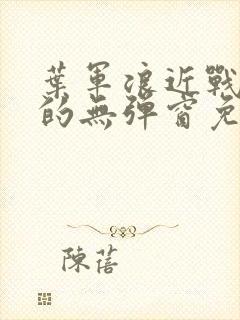 葉軍浪近戰
的無彈窗免
陳蓓